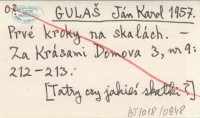 02 GULAŠ Ján Karol 1957.
Prvé kroky na skalách. —
Za Krásami Domova 3, nr 9:
212-213.-
[Tatry czy jakieś skałki?]
BT1018/0848